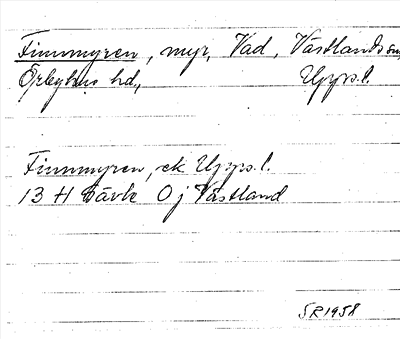 Finnmyren, myr, Vad, Västlands sn,
Örbyhus hd, Upps. l.
Finnmyren, ek Upps. l.
13 H Gävle 0 j Västland
SR 1958